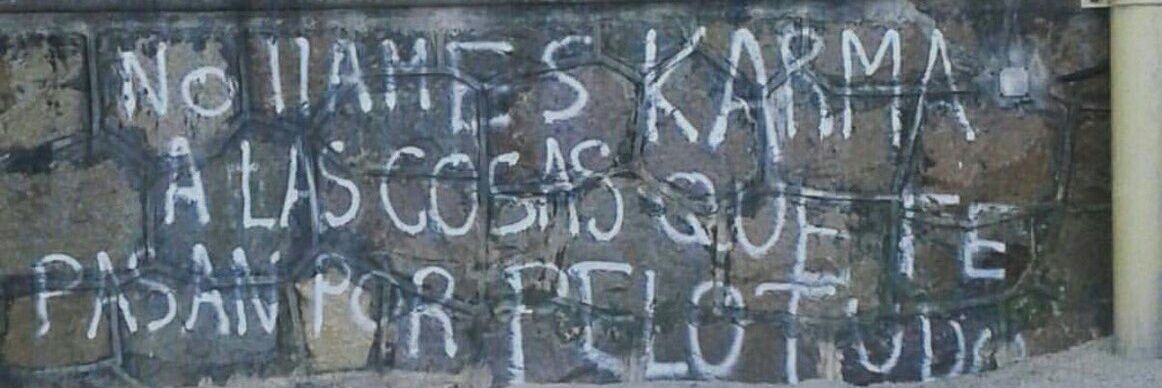 NO llAMES KARMA
A LAS COSAS QUE TE
PASAN POR PELOTUDO